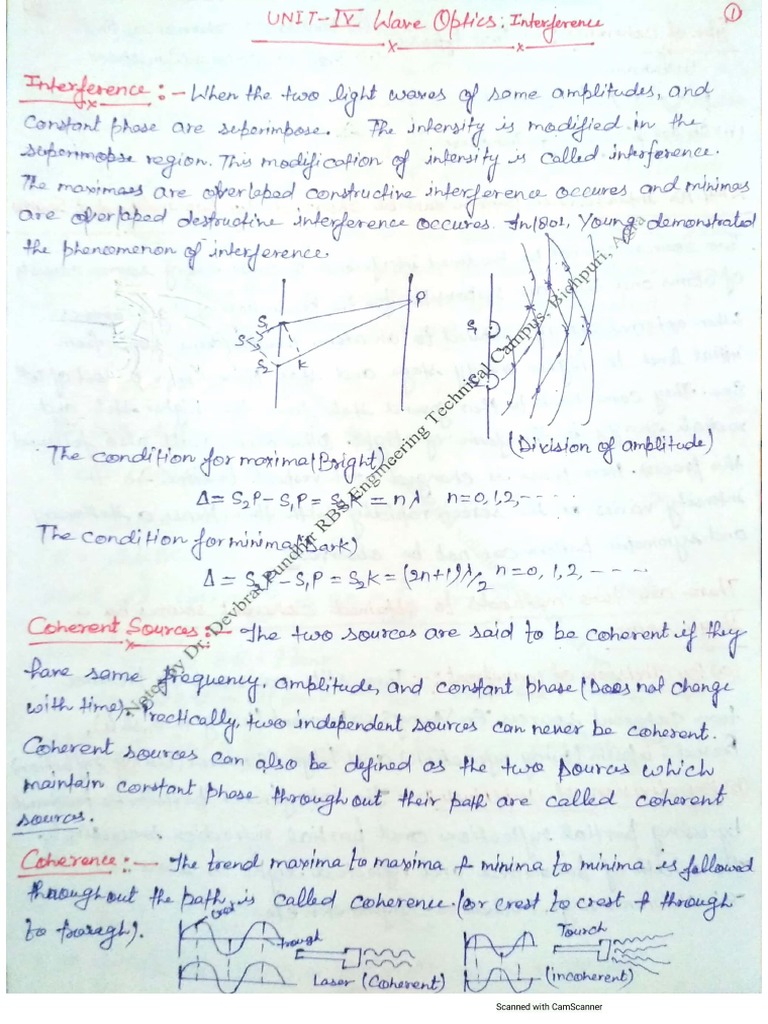 UNIT-IV Wave Optics: Interference
1
Interference:- When the two light waves of same amplitudes, and
Constant phase are superimpose. The intensity is modified in the
superimopse region. This modification of intensity is called interference.
The maximaes are overlaped constructive interference occures and minimas
are overlaped destructive interference occures. In 1801, Young demonstrated
the phenomenon of interference.
S S1 S2 K P
S1
(Division of amplitude)
The condition for maxima (Bright)
Δ = S2P - S1P = S2K = nλ n=0,1,2,-----
The condition for minima (Dark)
Δ = S2P - S1P = S2K = (2n+1)λ/2 n=0, 1, 2, -----
Coherent Sources:- The two sources are said to be coherent if they
have same frequency, amplitude, and constant phase (Does not change
with time). Practically, two independent sources can never be coherent.
Coherent sources can also be defined as the two sources which
maintain constant phase throughout their path are called coherent
sources.
Coherence:- The trend maxima to maxima & minima to minima is followed
throughout the path, is called coherence. (or crest to crest & through
to toragh).
Crest
Trough
Laser (Coherent)
Tourch
(incoherent)
Notes by Dr. Devbrat Pundhir RBS Engineering Technical Campus, Bichpuri,
Scanned with CamScanner